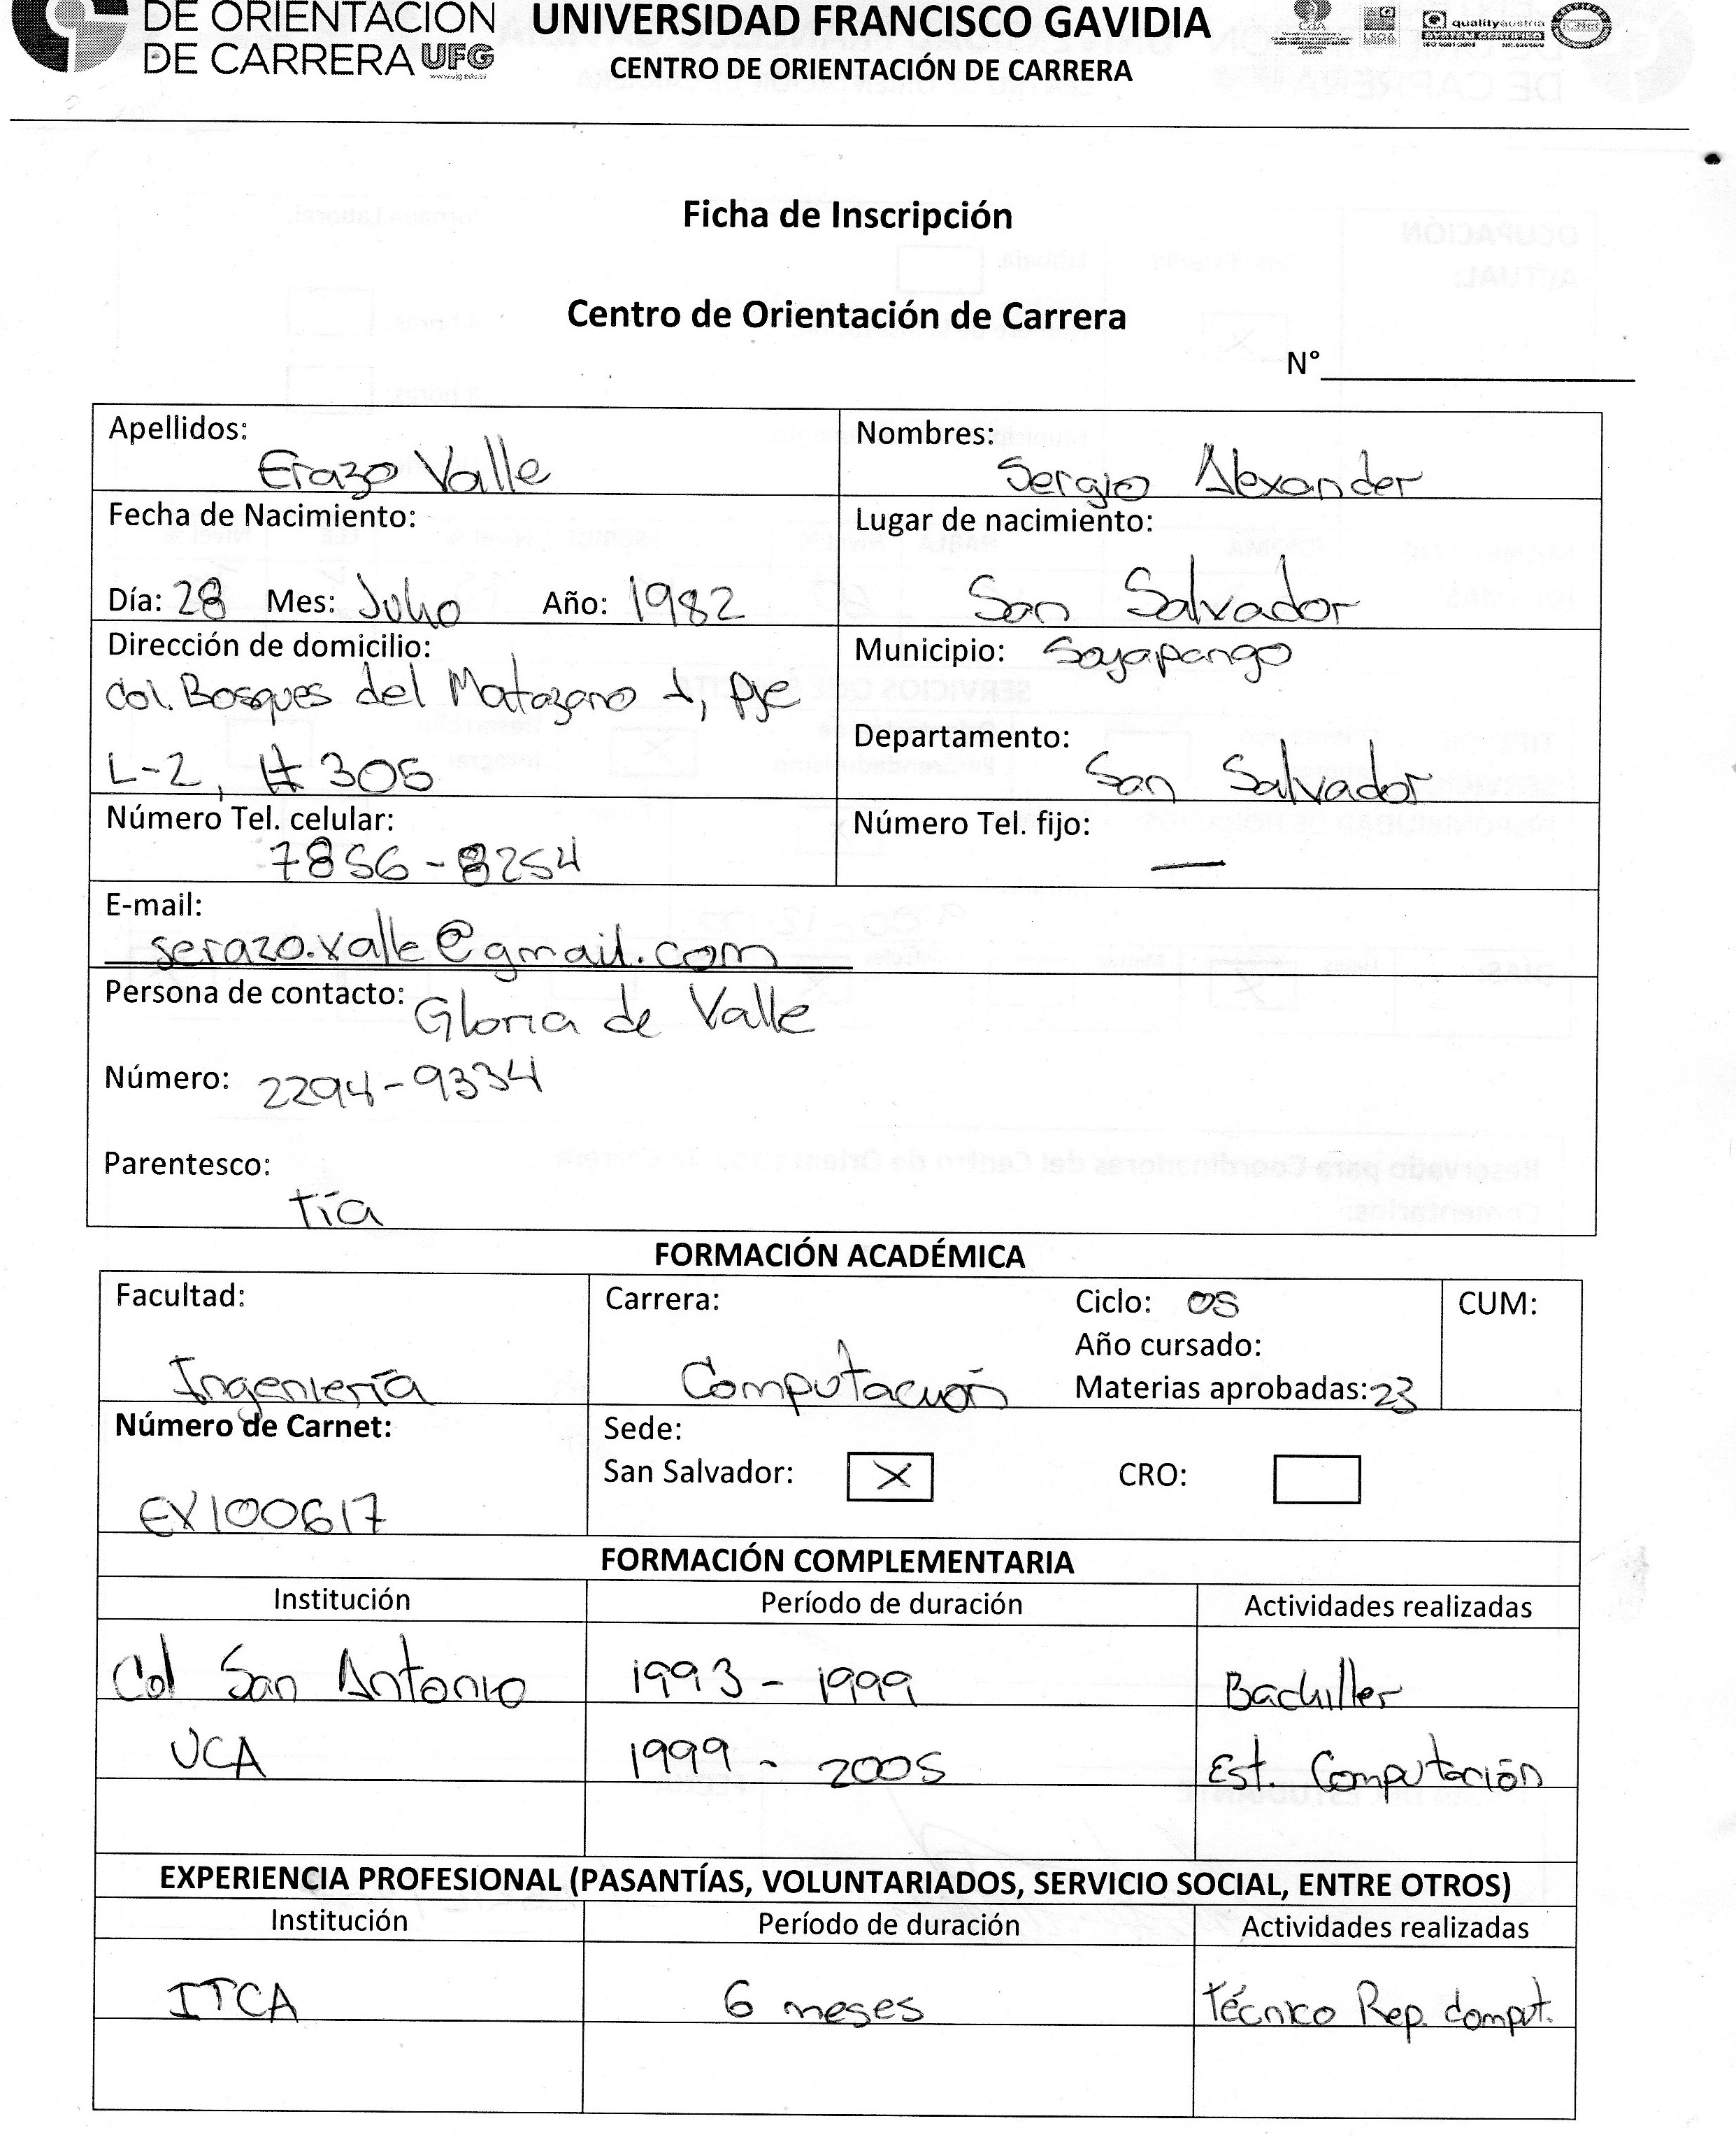 DE ORIENTACIÓN
DE CARRERA UFG
UNIVERSIDAD FRANCISCO GAVIDIA
CENTRO DE ORIENTACIÓN DE CARRERA
qualityaustria
SYSTEM CERTIFIED
Ficha de Inscripción
Centro de Orientación de Carrera
N°
Apellidos: Erazo Valle
Nombres: Sergio Alexander
Fecha de Nacimiento:
Día: 28 Mes: Julio Año: 1982
Lugar de nacimiento:
San Salvador
Dirección de domicilio:
Col. Bosques del Matazano 1, Pje
L-2, #305
Municipio: Soyapango
Departamento:
San Salvador
Número Tel. celular:
7856-8254
Número Tel. fijo:
—
E-mail:
serazo.valle@gmail.com
Persona de contacto: Gloria de Valle
Número: 2294-9334
Parentesco:
tía
FORMACIÓN ACADÉMICA
Facultad:
Ingeniería
Carrera:
Computación
Ciclo: 05
Año cursado:
Materias aprobadas: 23
CUM:
Número de Carnet:
EV100617
Sede:
San Salvador: X CRO:
FORMACIÓN COMPLEMENTARIA
Institución Período de duración Actividades realizadas
Col San Antonio 1993 - 1999 Bachiller
UCA 1999 - 2005 Est. Computación
EXPERIENCIA PROFESIONAL (PASANTÍAS, VOLUNTARIADOS, SERVICIO SOCIAL, ENTRE OTROS)
Institución Período de duración Actividades realizadas
ITCA 6 meses Técnico Rep. comput.